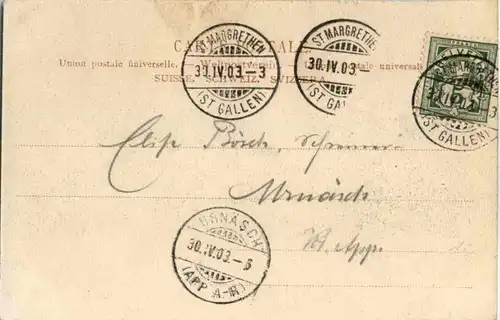 CARTE POSTALE
Union postale universelle. — Weltpostverein. — Unione postale universale
SUISSE. SCHWEIZ. SVIZZERA.
ST MARGRETHEN
30.IV.03.–3
(ST GALLEN)
ST MARGRETHEN
30.IV.03.–
(ST GALLEN)
ST MARGRETHEN
(ST GALLEN)
Elise Bösch,
Urnäsch
Kt. App.
URNÄSCH
30.IV.03.–5
(APP. A.-RH.)